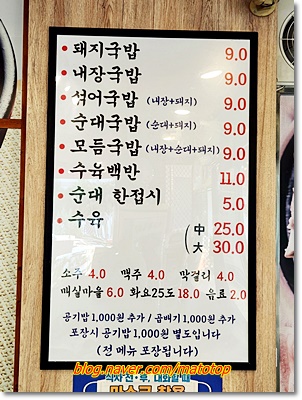 • 돼지국밥 9.0
• 내장국밥 9.0
• 섞어국밥 (내장+돼지) 9.0
• 순대국밥 (순대+돼지) 9.0
• 모듬국밥 (내장+순대+돼지) 9.0
• 수육백반 11.0
• 순대 한접시 5.0
• 수육 (中 25.0
大 30.0
소주 4.0 맥주 4.0 막걸리 4.0
매실마을 6.0 화요25도 18.0 음료 2.0
공기밥 1,000원 추가 / 곱배기 1,000원 추가
포장시 공기밥 1,000원 별도입니다
(전 메뉴 포장됩니다)
blog.naver.com/matotop
식사 전·후, 대화할 때
마스크 착용